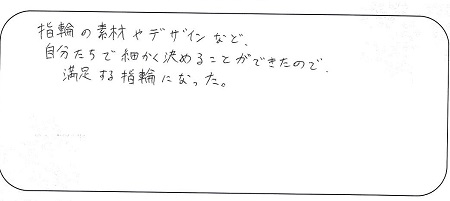 指輪の素材やデザインなど、
自分たちで細かく決めることができたので、
満足する指輪になった。